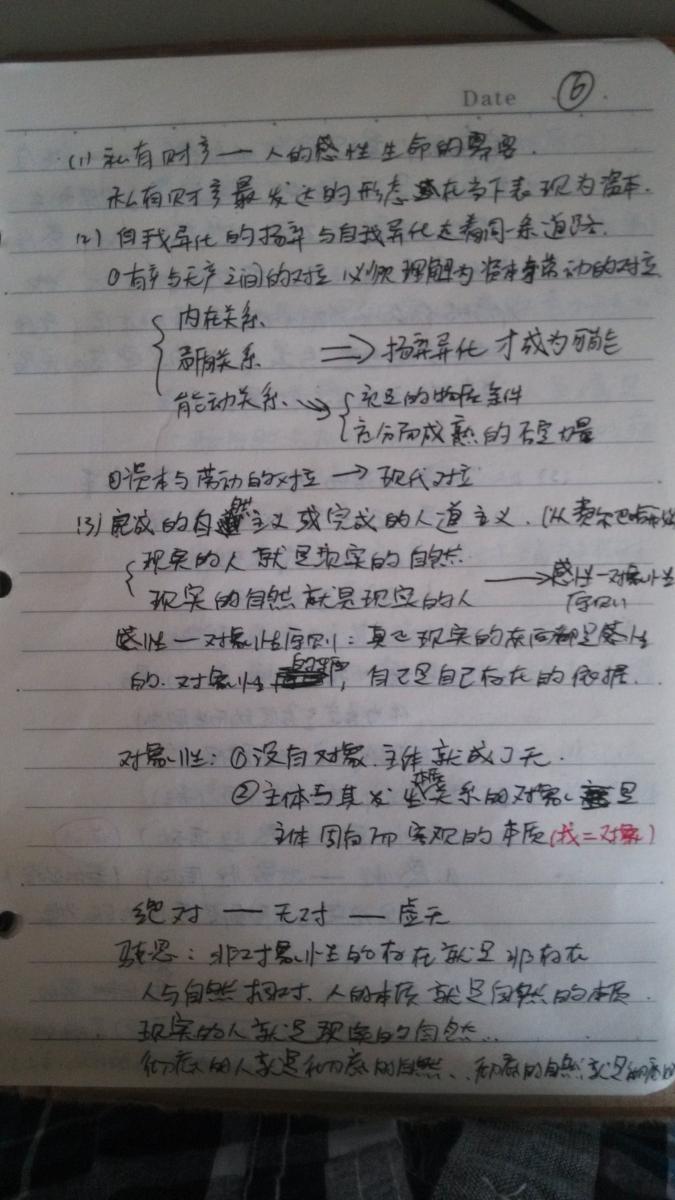 Date ⑥
(1) 私有财产 — 人的感性生命的异客.
私有财产最发达的形态在当下表现为资本.
(2) 自我异化的扬弃与自我异化走着同一条道路.
①有产与无产之间的对立 必须理解为资本与劳动的对立
内在关系
关系 ⇒ 扬弃异化才成为可能
能动关系 → 充足的物质条件
充分而成熟的否定力量
②资本与劳动的对立 → 现代对立
(3) 完成的自然主义或完成的人道主义. (从费尔巴哈
现实的人就是现实的自然
现实的自然就是现实的人 → 感性—对象性
原则
感性—对象性原则: 真正现实的东西都是感性
的. 对象性的, 自己是自己存在的依据.
对象性: ①没有对象, 主体就成了无.
②主体与其发生本质关系的对象, 是
主体固有而客观的本质(我=对象)
绝对 — 无对 — 虚无
马克思: 非对象性的存在就是非存在
人与自然相对, 人的本质就是自然的本质.
现实的人就是现实的自然.
彻底的人就是彻底的自然, 彻底的自然就是彻底的